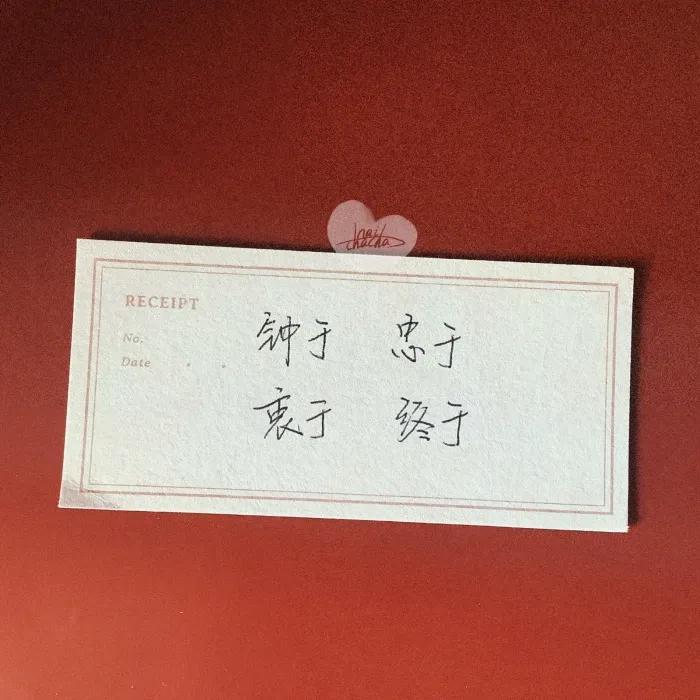 nai
chacha
RECEIPT
No.
Date . .
钟于 忠于
衷于 终于